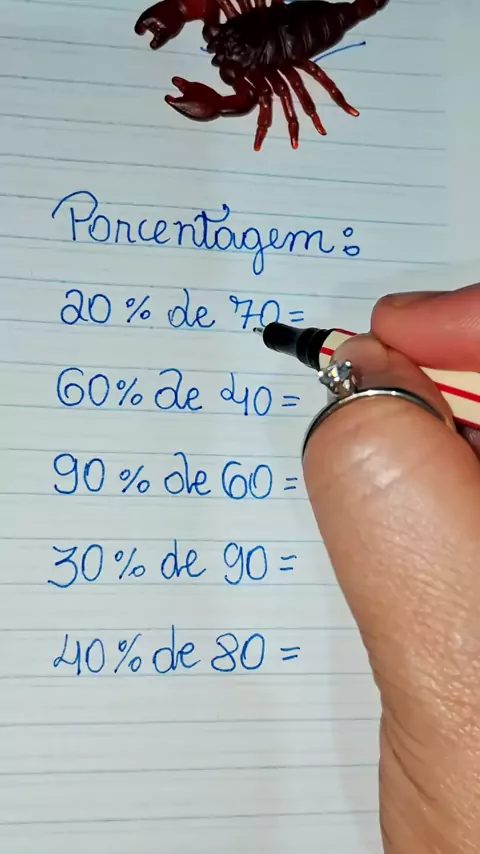 Porcentagem:
20% de 70=
60% de 40=
90% de 60=
30% de 90=
40% de 80=